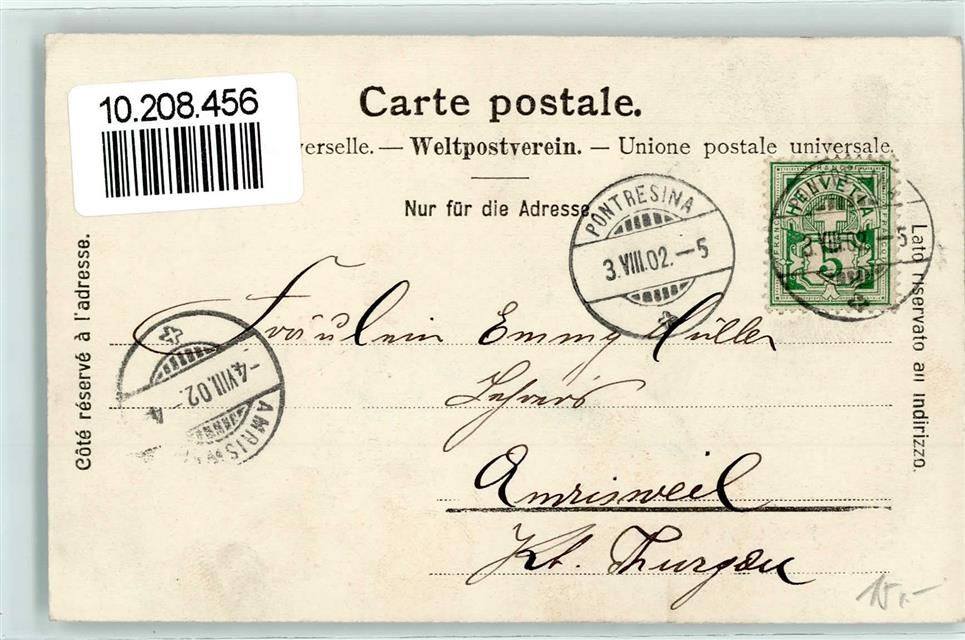 10.208.456
Carte postale.
verselle. — Weltpostverein. — Unione postale universale.
Nur für die Adresse
Côté réservé à l'adresse.
Lato riservato all indirizzo.
PONTRESINA
3.VIII.02.–5
FRANCO
HELVETIA
5
3.VIII.02.–5
Fräulein Emmy Müller
Amrisweil
Kt. Thurgau
–4.VIII.02.–4
AMRISW